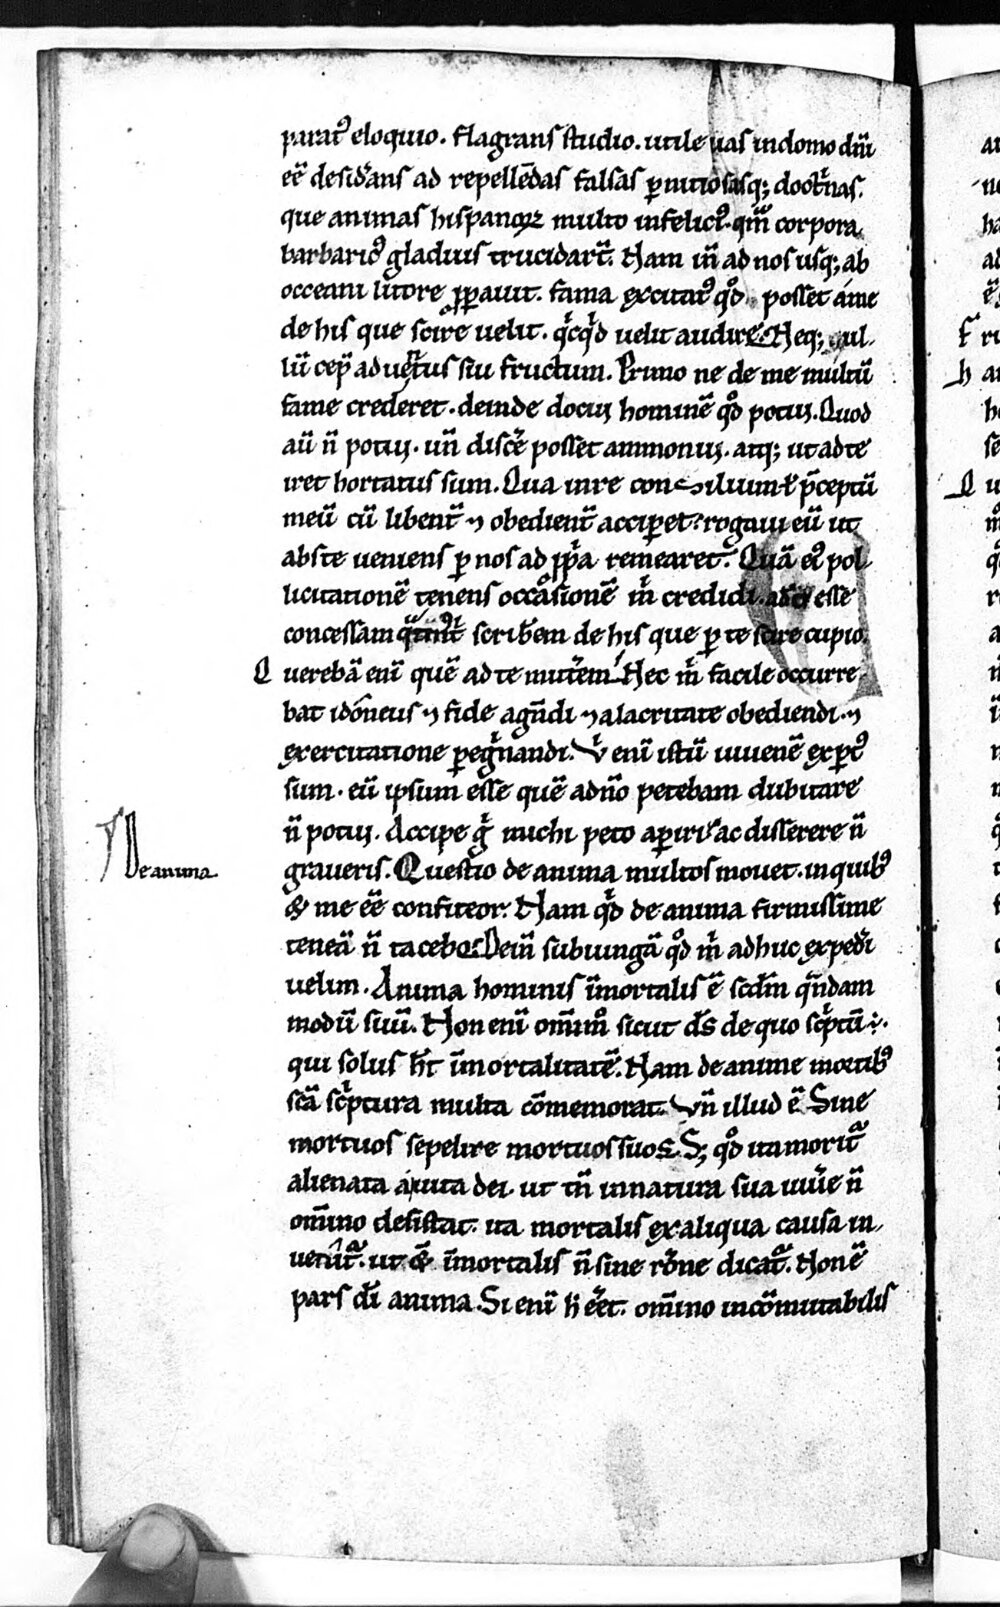 parat᷒ eloquio. flagrans studio. utile uas in domo dn̄i
eē desid̄ans ad repellēdas falsas ꝑnitiosasq; doctͥnas.
que animas hispanoꝝ multo infelici᷒. qm̄ corpora
barbaric᷒ gladius trucidart̄. Nam in̄ ad nos usq; ab
occeani litore ꝓꝑauit. fama excitat᷒ qd̄ posset a me
de his que scire uelit. qͥcqͥd uelit audire. Neq; nul
lū cep̄ aduent᷒us sui fructum. Primo ne de me multū
fame crederet. deinde docui hominē qd̄ potui. Quod
aū n̄ potui. un̄ discē posset ammonui. atq; ut ad te
iret hortatus sum. Qua in re consilium ł p̄ceptū
meū cū libent̄ ⁊ obedient̄ acciꝑet? rogaui eū ut
abs te ueniens ꝑ nos ad ꝓpͥa remearet. Quā ei᷒ pol
licitationē tenens occasionē m̄ credidi. a dō esse
concessam qͣ tibi scriberem de his que ꝑ te scire cupio.
Querebā enī quē ad te mittem̄. Nec m̄ facile occurre
bat idoneus ⁊ fide agēdi ⁊ alacritate obediendi. ⁊
exercitatione ꝑegͥnandi. Vͥ enī istū iuuenē exꝑt᷒
sum. eū ipsum esse quē a dn̄o petebam dubitare
n̄ potui. Accipe gͥ michi peto aꝑiri ac disserere n̄
De anima
graueris. Questio de anima multos mouet. in quib᷒
⁊ me eē confiteor. Nam qͥd de anima firmissime
teneā n̄ tacebo. Dein̄ subiungā qd̄ m̄ adhuc expedīri
uelim. Anima hominis īmortalis ē scd̄m qͣndam
modū suū. Non enī om̄imͦ sicut d̄s de quo scͥptū ē.
qui solus ht̄ īmortalitatē. Nam de anime mortib᷒
scā scͥptura multa cōmemorat. Vn̄ illud ē Sine
mortuos sepelire mortuos suos. S; qd̄ ita moritͣ
alienata a uita dei. ut tn̄ in natura sua uiuēe n̄
om̄ino desistat. ita mortalis ex aliqua causa in
uenītͣ. ut ⁊ īmortalis n̄ sine rōne dicatͣ. Non ē
pars dī anima. Si enī h̄ eēt. om̄ino incōmutabilis